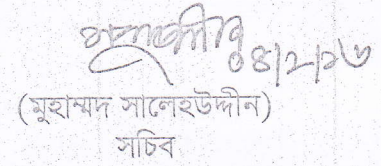 ০৪/২/২৬
(মুহাম্মদ সালেহউদ্দীন)
সচিব